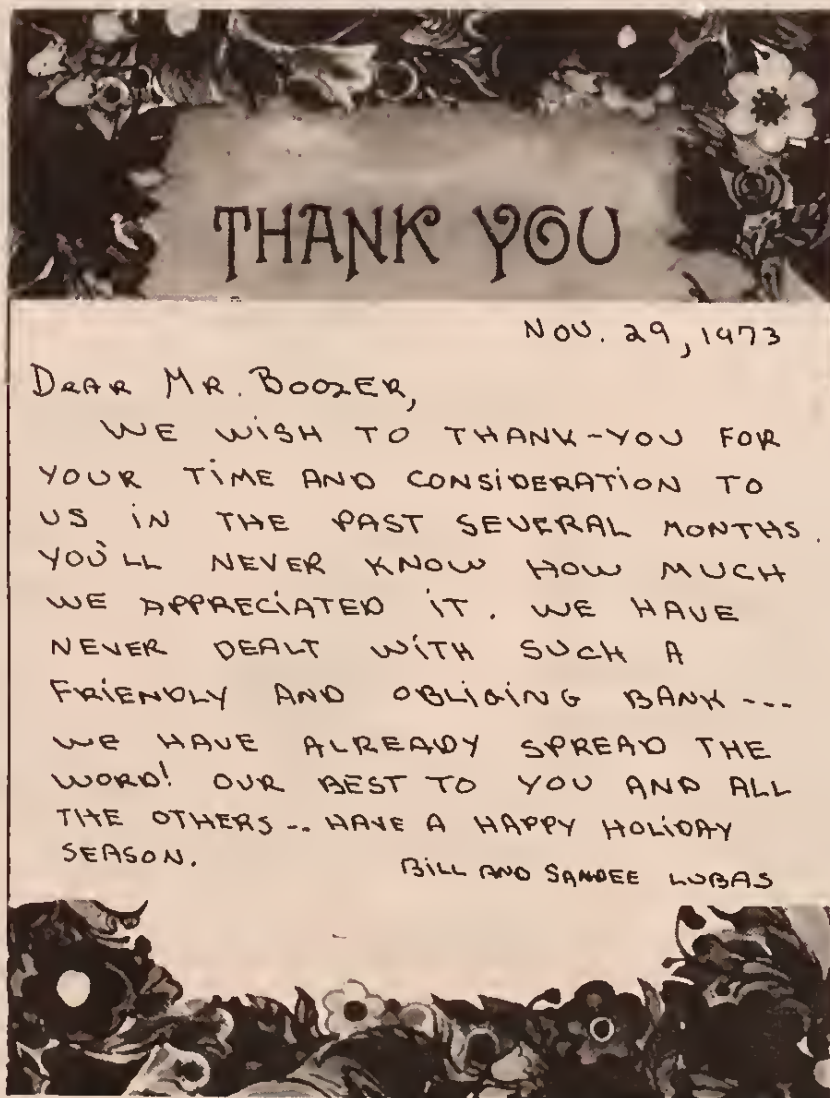 THANK YOU
NOV. 29, 1973
DEAR MR. BOOZER,
WE WISH TO THANK-YOU FOR
YOUR TIME AND CONSIDERATION TO
US IN THE PAST SEVERAL MONTHS.
YOU'LL NEVER KNOW HOW MUCH
WE APPRECIATED IT. WE HAVE
NEVER DEALT WITH SUCH A
FRIENDLY AND OBLIGING BANK---
WE HAVE ALREADY SPREAD THE
WORD! OUR BEST TO YOU AND ALL
THE OTHERS-- HAVE A HAPPY HOLIDAY
SEASON.
BILL AND SANDEE LUBAS